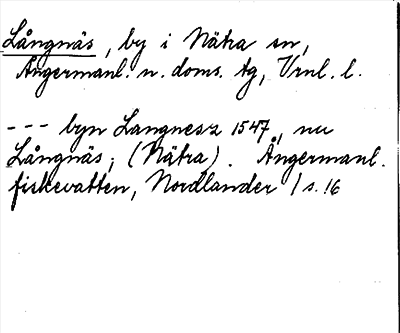 Långnäs, by i Nätra sn,
Ångermanl. n. doms. tg, Vrnl. l.
--- byn Langnesz 1547, nu
Långnäs, (Nätra). Ångermanl.
fiskevatten, Nordlander 1 s. 16